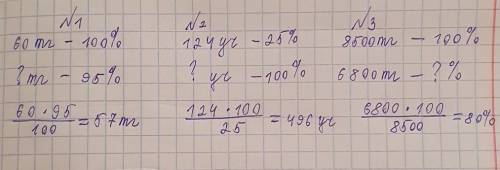 №1
60 тг – 100%
? тг – 95%
60 · 95 / 100 = 57 тг
№2
124 уч – 25%
? уч – 100%
124 · 100 / 25 = 496 уч
№3
8500 тг – 100%
6800 тг – ? %
6800 · 100 / 8500 = 80%